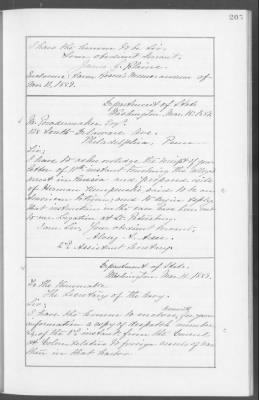 205
I have the honor to be Sir,
Your obedient Servant.
James G. Blaine.
Enclosure: Memorandum of
Mar. 11, 1889.
Department of State
Washington, Mar. 15, 1889.
Esq.
South Delaware Ave.
Philadelphia, Penna
Sir:
I have to acknowledge the receipt of your
letter of 11th instant touching the alleged
arrest in Russia and proposed exile
of Herman Kempinski said to be an
American Citizen; and to say in reply
that instruction in the case has been sent
to our Legation at St. Petersburg.
I am Sir, Your obedient servant,
Alvey A. Adee.
2d Assistant Secretary
Department of State.
Washington, Mar. 1889.
To the Honorable
The Secretary of the Navy.
Sir:
I have the honor to enclose, for your
information a copy of despatch number
of the instant from the Consul
at Colon relative to foreign vessels of war
then in that harbor.